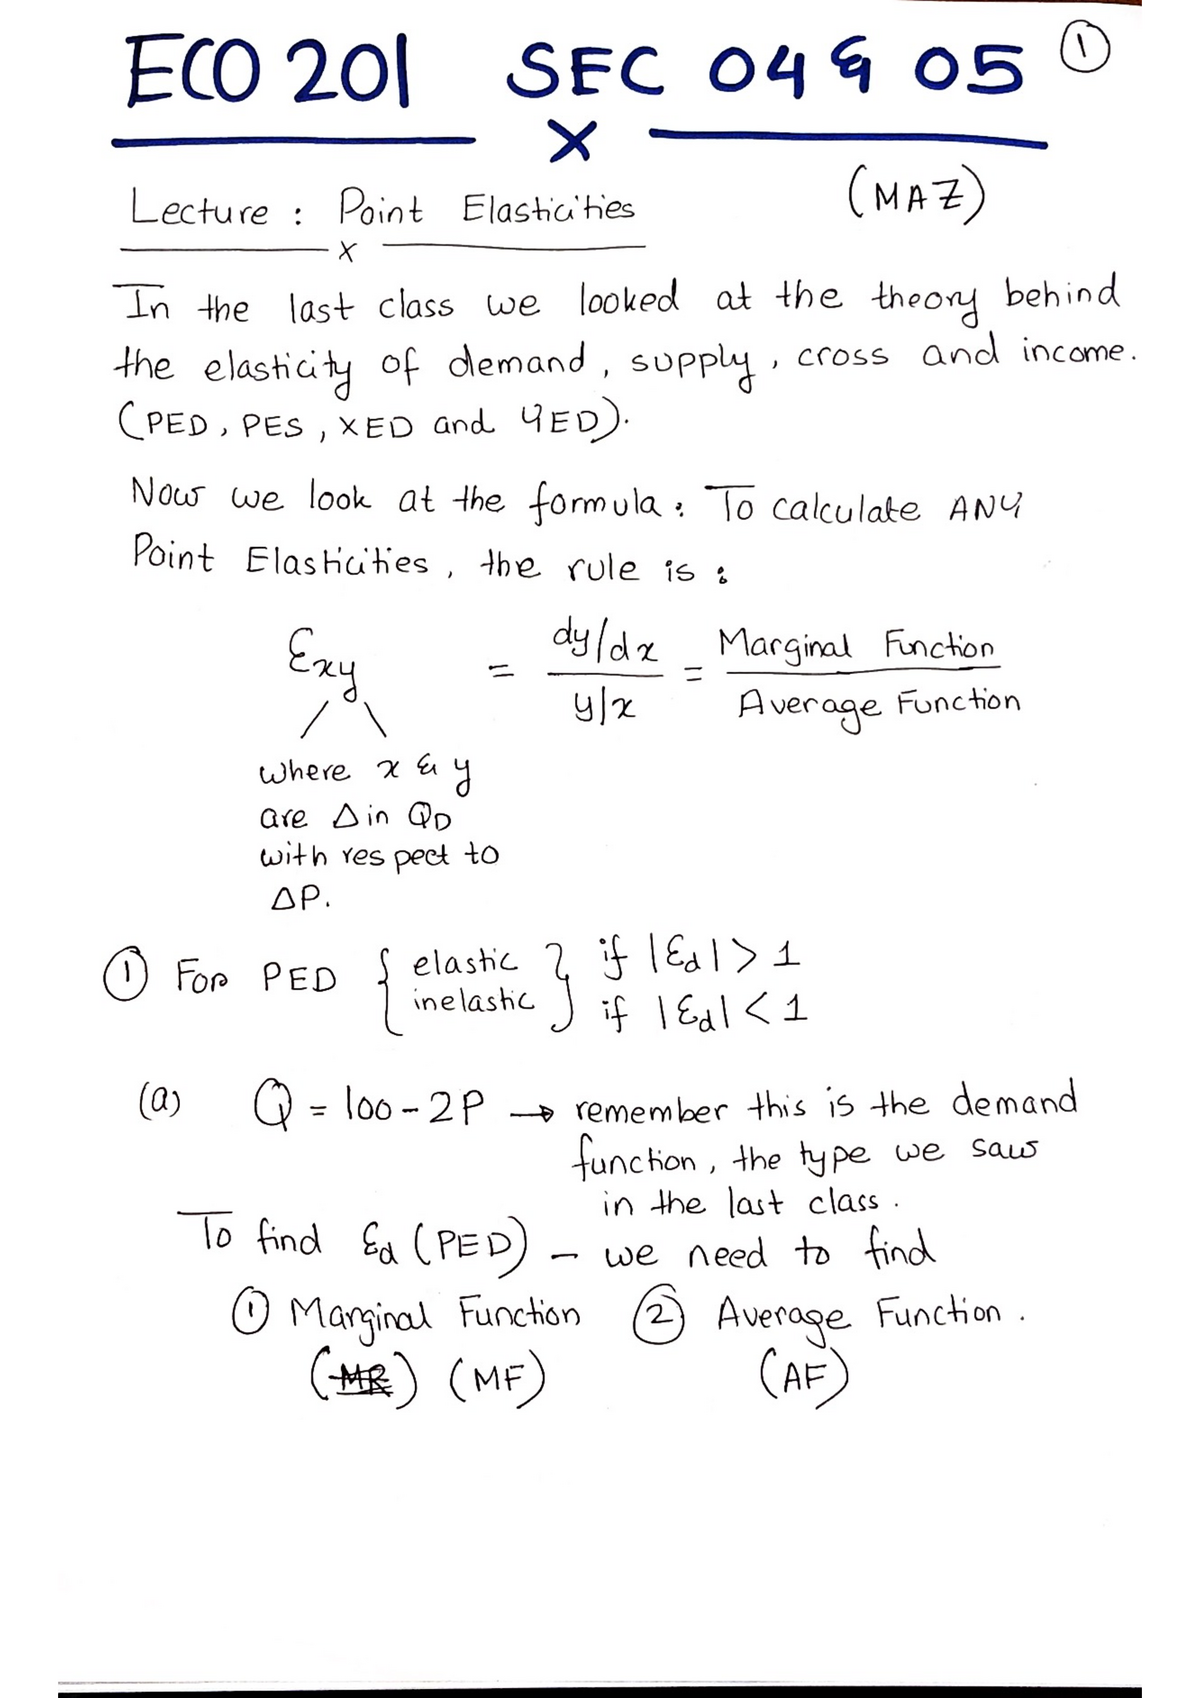 ECO 201 SEC 04 & 05 ①
x
Lecture : Point Elasticities (MAZ)
x
In the last class we looked at the theory behind
the elasticity of demand, supply, cross and income.
(PED, PES, XED and YED).
Now we look at the formula: To calculate ANY
Point Elasticities, the rule is :
Ɛxy = dy/dx / y/x = Marginal Function / Average Function
where x & y
are Δ in QD
with respect to
ΔP.
① For PED { elastic } if |Ɛd| > 1
inelastic if |Ɛd| < 1
(a) Q = 100 - 2P → remember this is the demand
function, the type we saw
in the last class.
To find Ɛd (PED) – we need to find
① Marginal Function ② Average Function.
(MR) (MF) (AF)